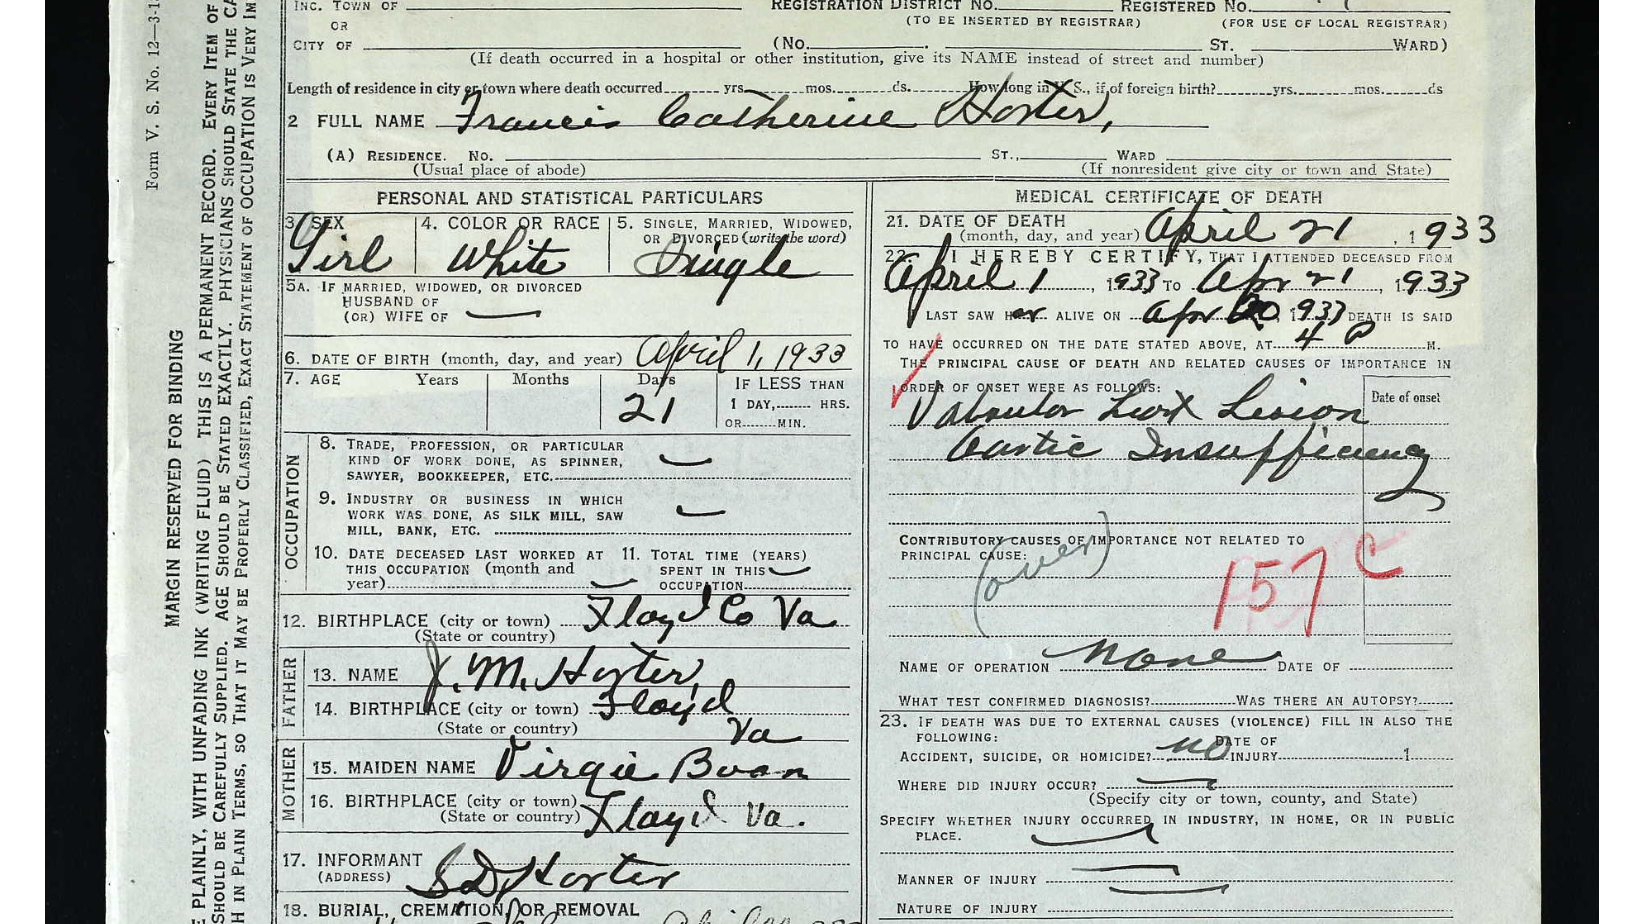 INC. TOWN OF REGISTRATION DISTRICT NO. REGISTERED NO.
OR (TO BE INSERTED BY REGISTRAR) (FOR USE OF LOCAL REGISTRAR)
CITY OF (No. ST. WARD)
(If death occurred in a hospital or other institution, give its NAME instead of street and number)
Length of residence in city or town where death occurred yrs. mos. ds. How long in U. S., if of foreign birth? yrs. mos. ds
2 FULL NAME Francis Catherine Horter,
(A) RESIDENCE. NO. ST., WARD
(Usual place of abode) (If nonresident give city or town and State)
PERSONAL AND STATISTICAL PARTICULARS
3. SEX 4. COLOR OR RACE 5. SINGLE, MARRIED, WIDOWED,
OR DIVORCED (write the word)
Girl White Single
5A. IF MARRIED, WIDOWED, OR DIVORCED
HUSBAND OF
(OR) WIFE OF
6. DATE OF BIRTH (month, day, and year) April 1, 1933
7. AGE Years Months Days IF LESS THAN
21 1 DAY, HRS.
OR MIN.
OCCUPATION
8. TRADE, PROFESSION, OR PARTICULAR
KIND OF WORK DONE, AS SPINNER,
SAWYER, BOOKKEEPER, ETC.
9. INDUSTRY OR BUSINESS IN WHICH
WORK WAS DONE, AS SILK MILL, SAW
MILL, BANK, ETC.
10. DATE DECEASED LAST WORKED AT 11. TOTAL TIME (YEARS)
THIS OCCUPATION (month and SPENT IN THIS
year) OCCUPATION
12. BIRTHPLACE (city or town) Floyd Co Va
(State or country)
FATHER
13. NAME J. M. Horter,
14. BIRTHPLACE (city or town) Floyd
(State or country) Va
MOTHER
15. MAIDEN NAME Virgie Boan
16. BIRTHPLACE (city or town) Floyd Va.
(State or country)
17. INFORMANT S D Horter
(ADDRESS)
18. BURIAL, CREMATION, OR REMOVAL
MEDICAL CERTIFICATE OF DEATH
21. DATE OF DEATH April 21, 1933
(month, day, and year)
22. I HEREBY CERTIFY, THAT I ATTENDED DECEASED FROM
April 1, 1933 TO Apr 21, 1933
I LAST SAW H er ALIVE ON Apr 20, 1933 DEATH IS SAID
TO HAVE OCCURRED ON THE DATE STATED ABOVE, AT 4 P M.
THE PRINCIPAL CAUSE OF DEATH AND RELATED CAUSES OF IMPORTANCE IN
ORDER OF ONSET WERE AS FOLLOWS: Date of onset
Valvular Hart Lision
Aortic Insufficiency
CONTRIBUTORY CAUSES OF IMPORTANCE NOT RELATED TO
PRINCIPAL CAUSE:
(over)
157 C
NAME OF OPERATION None DATE OF
WHAT TEST CONFIRMED DIAGNOSIS? WAS THERE AN AUTOPSY?
23. IF DEATH WAS DUE TO EXTERNAL CAUSES (VIOLENCE) FILL IN ALSO THE
FOLLOWING: DATE OF
ACCIDENT, SUICIDE, OR HOMICIDE? no INJURY 1
WHERE DID INJURY OCCUR?
(Specify city or town, county, and State)
SPECIFY WHETHER INJURY OCCURRED IN INDUSTRY, IN HOME, OR IN PUBLIC
PLACE.
MANNER OF INJURY
NATURE OF INJURY
Form V. S. No. 12—3-1
MARGIN RESERVED FOR BINDING
E PLAINLY, WITH UNFADING INK (WRITING FLUID) THIS IS A PERMANENT RECORD. EVERY ITEM OF
SHOULD BE CAREFULLY SUPPLIED. AGE SHOULD BE STATED EXACTLY. PHYSICIANS SHOULD STATE THE CA
H IN PLAIN TERMS, SO THAT IT MAY BE PROPERLY CLASSIFIED, EXACT STATEMENT OF OCCUPATION IS VERY IM